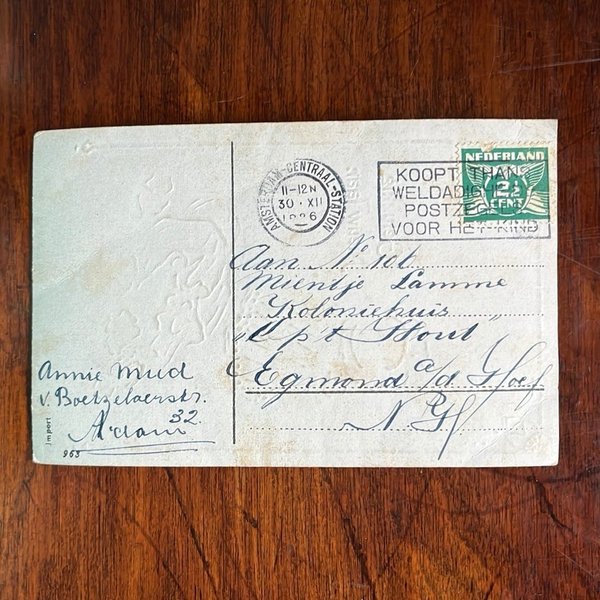 AMSTERDAM-CENTRAAL-STATION
11-12N
30.XII
1926
KOOPT THANS
WELDADIGHEIDS
POSTZEGELS
VOOR HET KIND
NEDERLAND
2½
CENT
Aan No 106
Mientje Lamme
Koloniehuis
"Up t Hout"
Egmond a/d Hoef
N.H.
Annie Mud
v. Boetzelaerstr.
32.
A'dam
Import
963